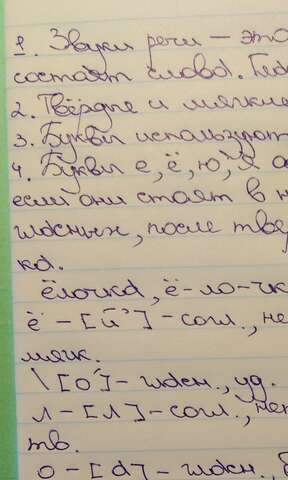 1. Звуки речи – это
состоят слова. Гла
2. Твёрдые и мягкие
3. Буквы использует
4. Буквы е, ё, ю, я о
если они стоят в н
гласных, после твё
ка.
ёлочка, ё-ло-чк
ё – [й'] – согл., не
мягк.
\ [о́] – гласн., уд.
л – [л] – согл., неп
тв.
о – [а] – гласн., б